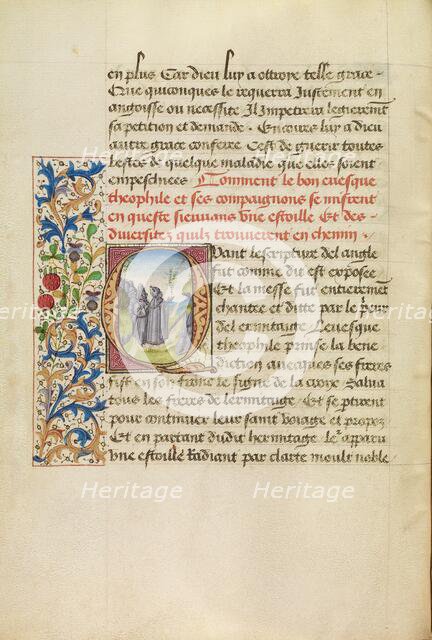 en plus Car dieu luy a ottroye telle grace.
Que quiconques le requerra Justement en
angoisse ou necessite Il Impetrera legierement
sa peticion et demande. Encoures luy a dieu
autre grace conferee C'est de guerir toutes
bestes de quelque maladie que elles soient
empeschiees Comment le bon euesque
theophile et ses compaignons se mistrent
en queste sieuuans Une estoille Et des
diuersitez quilz trouuerent en chemin.
Quant lescripture del angle
fut comme dit est exposee
Et la messe fut entierement
chantee et ditte par le
del ermitauge Leuesque
theophile prinse la bene
diction auecques ses freres
fist en son frain le signe de la croix Salua
tous les freres de lermitauge. Et se partirent
pour continuer leur saint Voiage et propoz
Et en partant dudit hermitage le apparu
Une estoille radiant par clarte moult noble
Heritage
Heritage
Heritage
Heritage